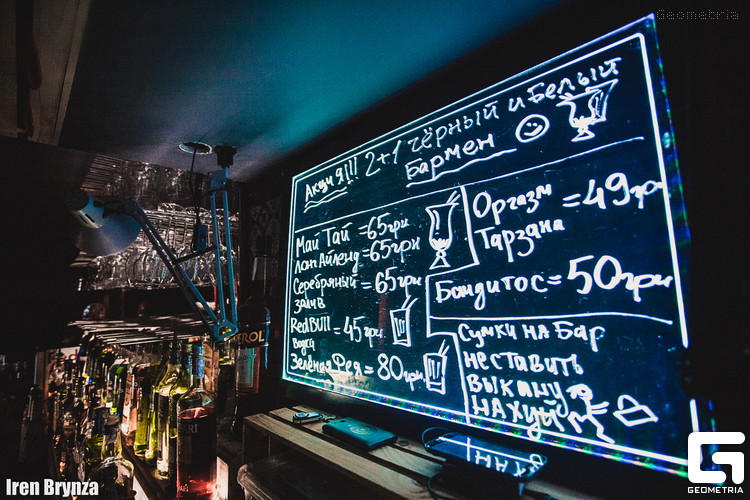 Geometria
Акция!!! 2+1 чёрный и Белый
Бармен
Май Тай =65грн
Лонг Айленд =65грн
Серебряный =65грн
залив
RedBUll =45грн
Водка
Зелёная Фея = 80грн
Оргазм =49грн
Тарзана
Бандитос= 50грн
Сумки на Бар
неставить
выкину
нахуй
Iren Brynza
GEOMETRIA